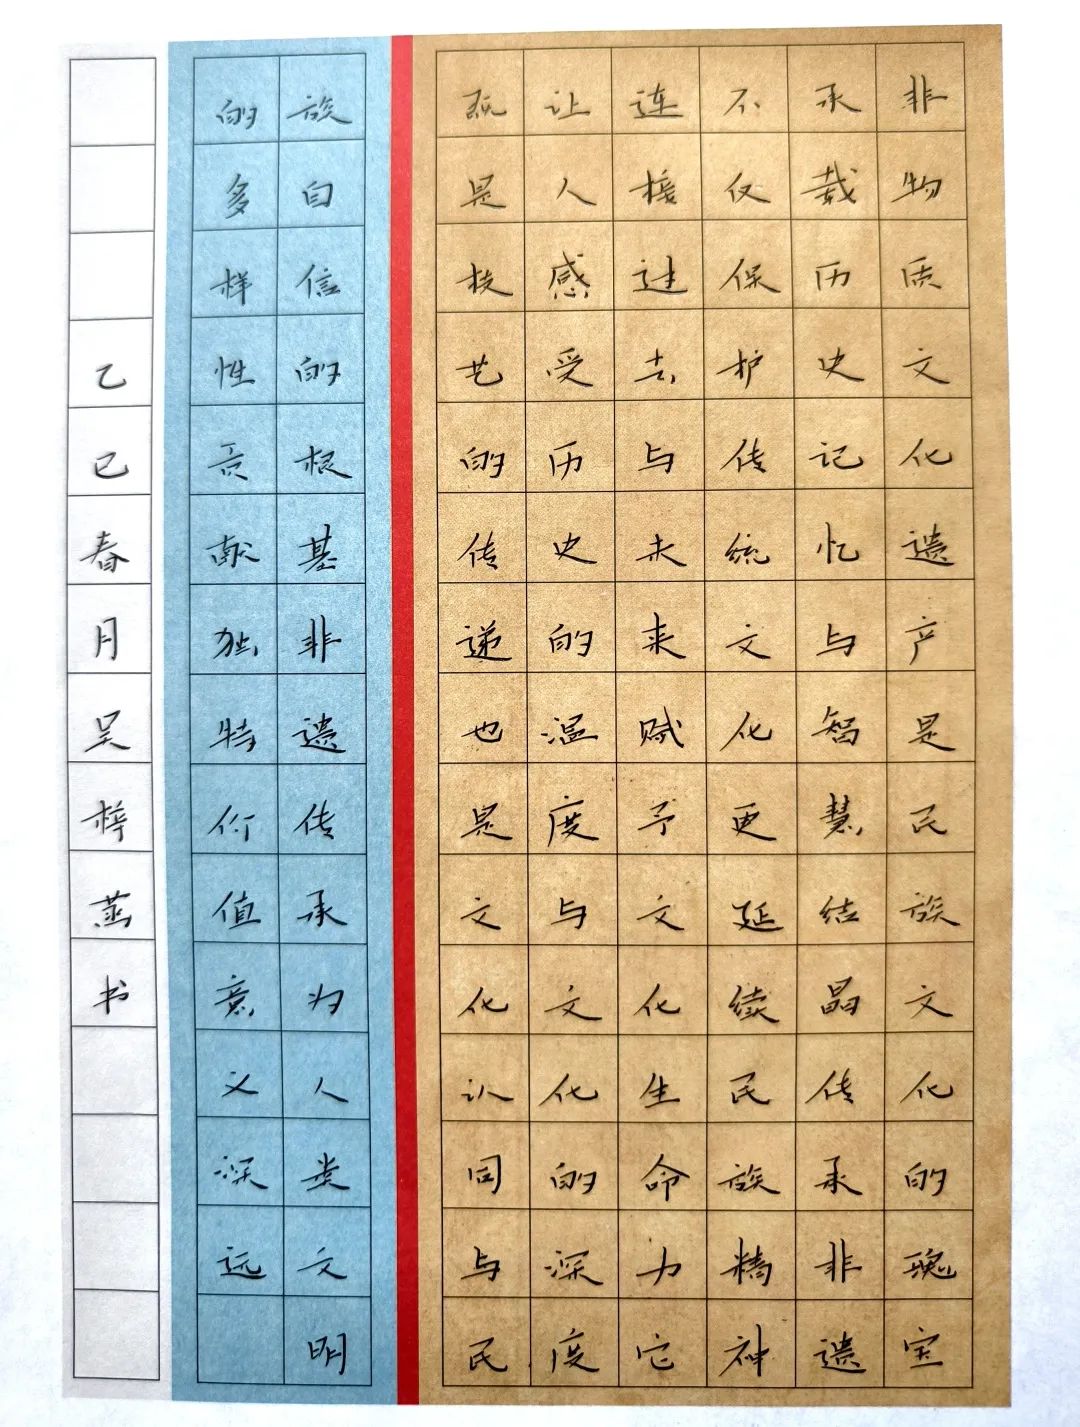 非物质文化遗产是民族文化的瑰宝
承载历史记忆与智慧结晶传承非遗
不仅保护传统文化更延续民族精神
连接过去与未来赋予文化生命力它
让人感受历史的温度与文化的深度
既是技艺的传递也是文化认同与民
族自信的根基非遗传承为人类文明
的多样性贡献独特价值意义深远
乙巳春月吴梓菡书